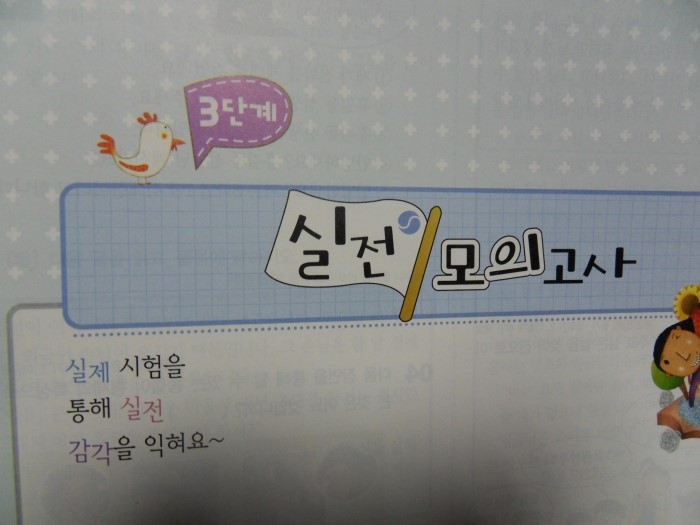 3단계
실전 모의고사
실제 시험을
통해 실전
감각을 익혀요~